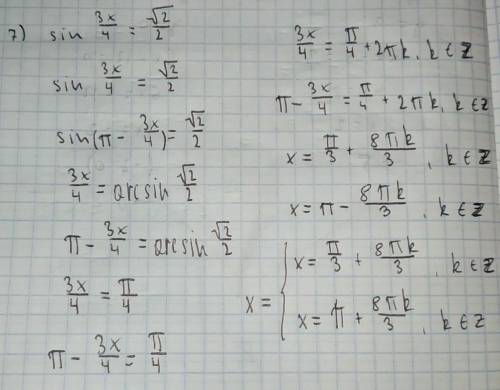 7) sin 3x/4 = √2/2
sin 3x/4 = √2/2
sin(π - 3x/4) = √2/2
3x/4 = arcsin √2/2
π - 3x/4 = arcsin √2/2
3x/4 = π/4
π - 3x/4 = π/4
3x/4 = π/4 + 2πk, k ∈ Z
π - 3x/4 = π/4 + 2πk, k ∈ Z
x = π/3 + 8πk/3, k ∈ Z
x = π - 8πk/3, k ∈ Z
x = { x = π/3 + 8πk/3, k ∈ Z
x = π + 8πk/3, k ∈ Z